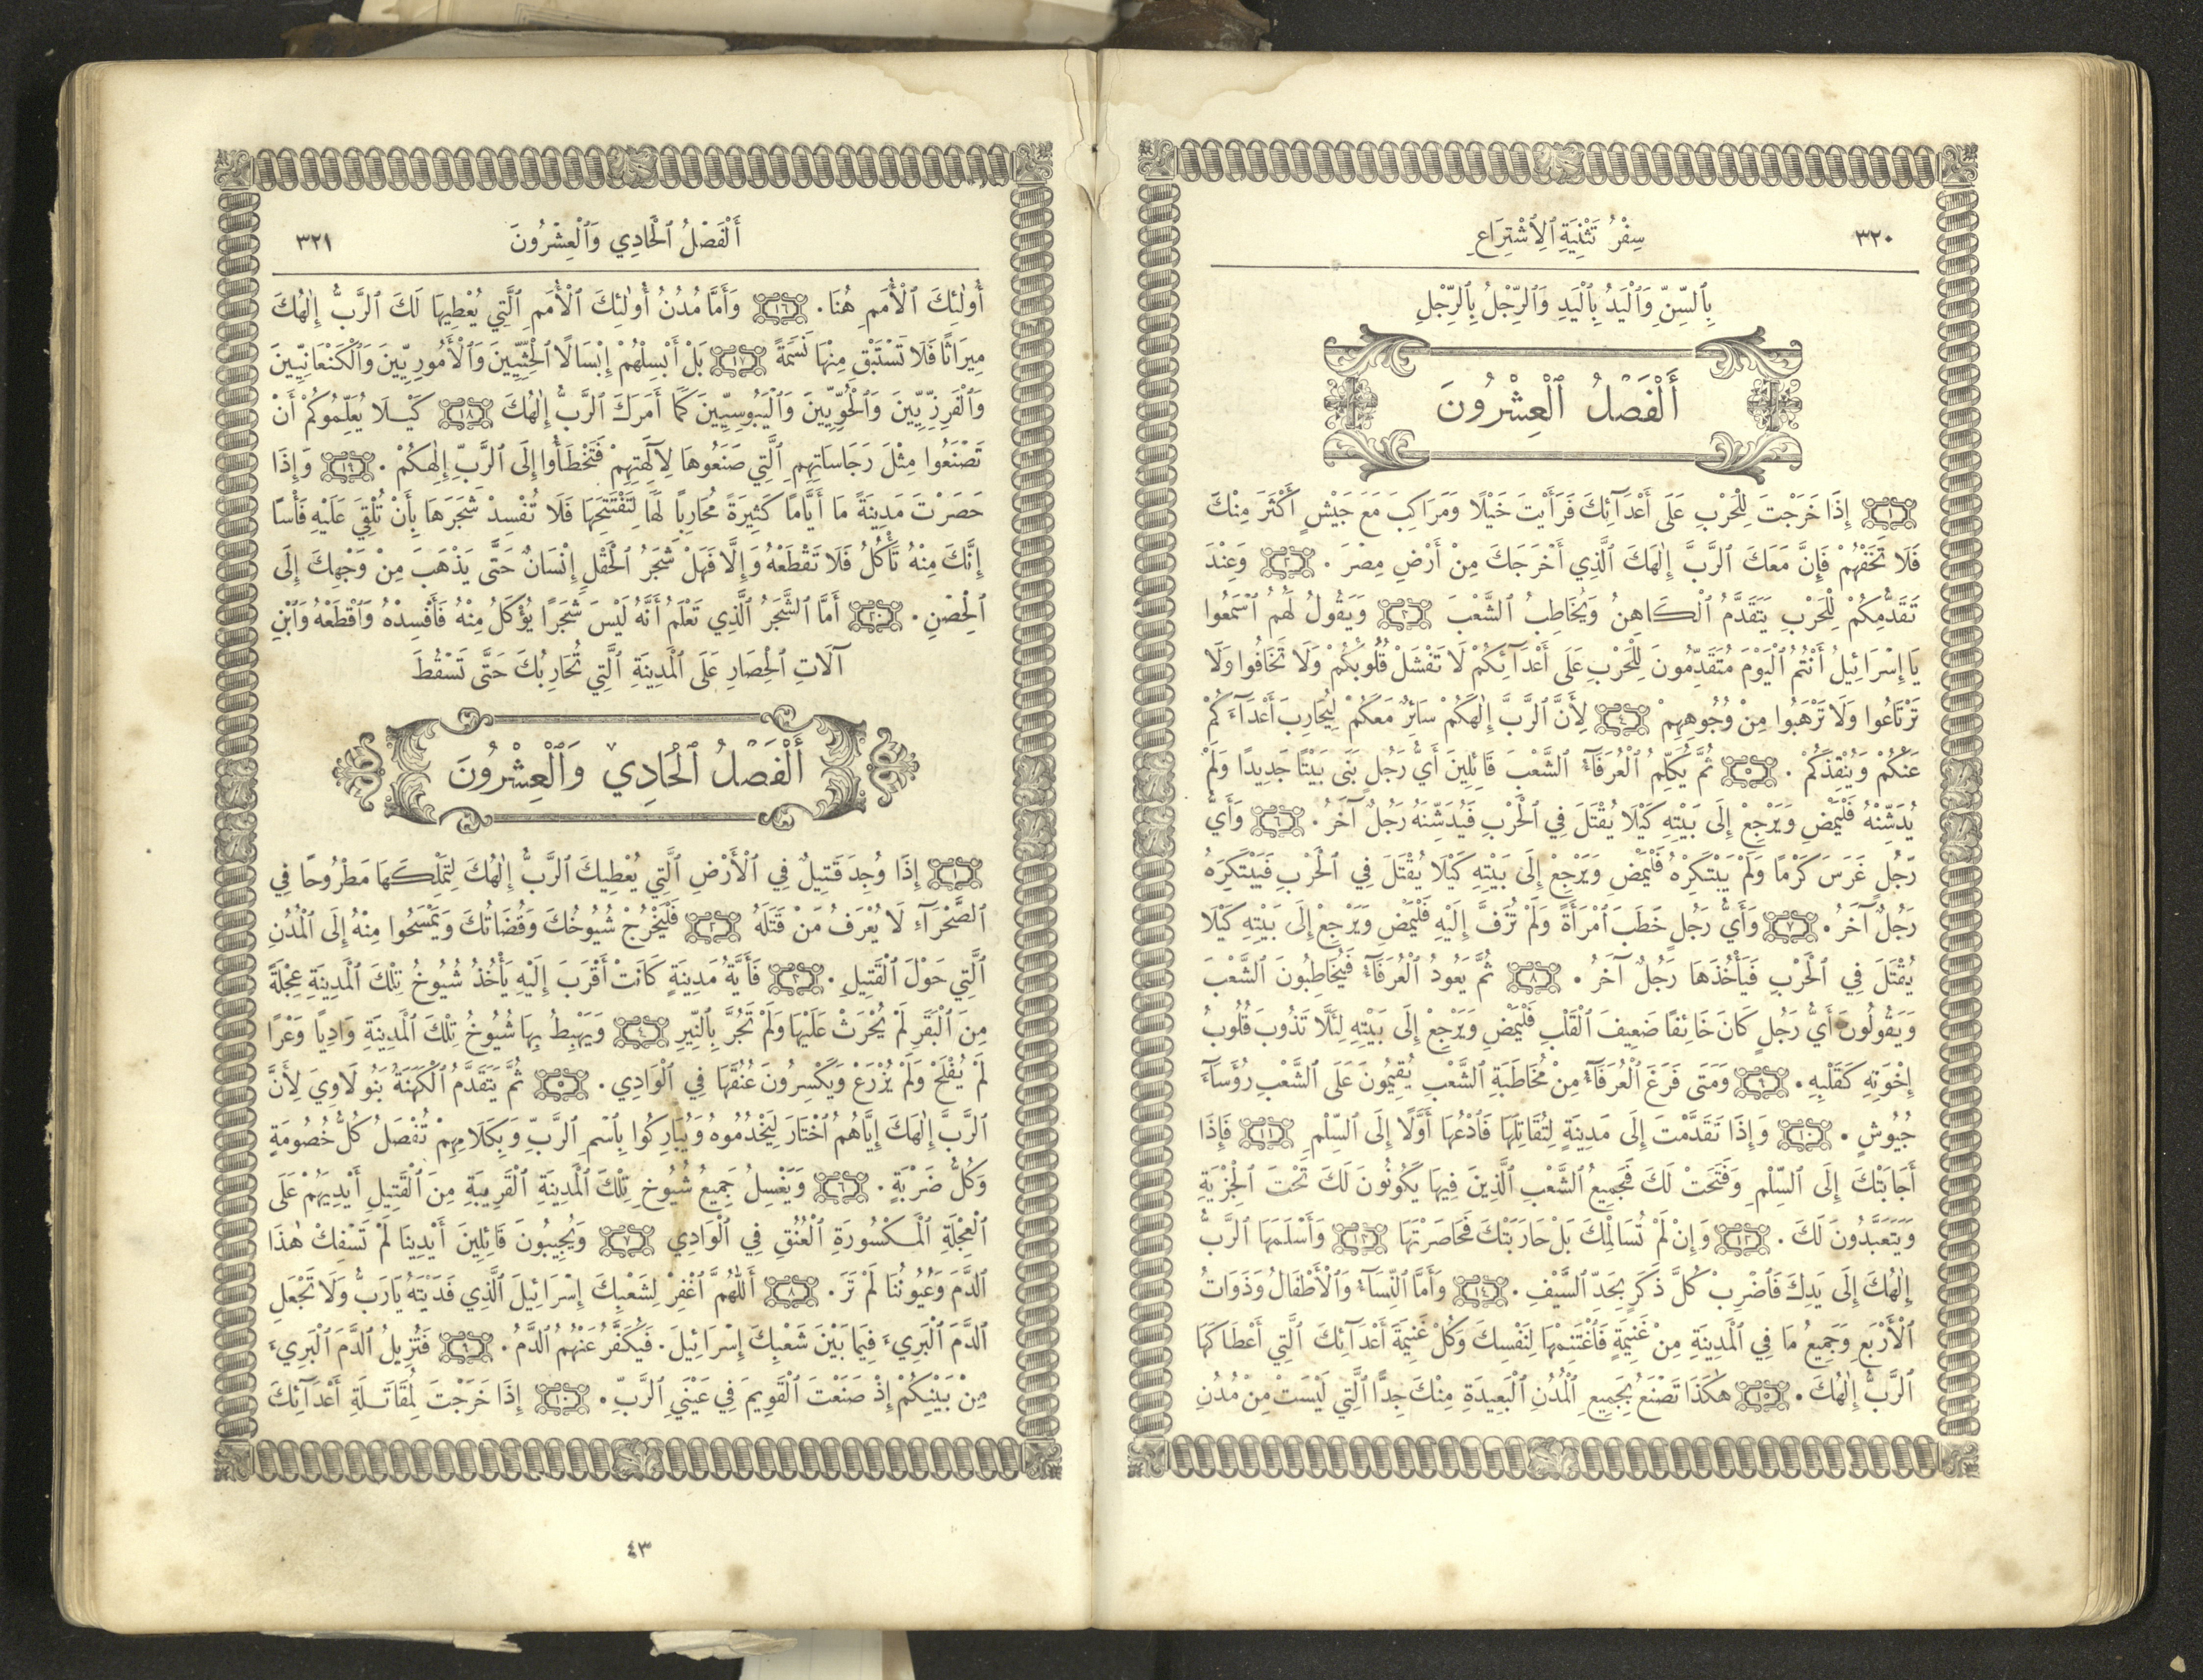 ٣٢٠
سِفْرُ تَثْنِيَةِ ٱلِٱشْتِرَاعِ
بِٱلسِّنِّ وَٱلْيَدُ بِٱلْيَدِ وَٱلرِّجْلُ بِٱلرِّجْلِ
أَلْفَصْلُ ٱلْعِشْرُونَ
١ إِذَا خَرَجْتَ لِلْحَرْبِ عَلَى أَعْدَآئِكَ فَرَأَيْتَ خَيْلًا وَمَرَاكِبَ مَعَ جَيْشٍ أَكْثَرَ مِنْكَ
فَلَا تَخَفْهُمْ فَإِنَّ مَعَكَ ٱلرَّبَّ إِلٰهَكَ ٱلَّذِي أَخْرَجَكَ مِنْ أَرْضِ مِصْرَ . ٢ وَعِنْدَ
تَقَدُّمِكُمْ لِلْحَرْبِ يَتَقَدَّمُ ٱلْكَاهِنُ وَيُخَاطِبُ ٱلشَّعْبَ ٣ وَيَقُولُ لَهُمُ ٱسْمَعُوا
يَا إِسْرَائِيلُ أَنْتُمُ ٱلْيَوْمَ مُتَقَدِّمُونَ لِلْحَرْبِ عَلَى أَعْدَآئِكُمْ لَا تَفْشَلْ قُلُوبُكُمْ وَلَا تَخَافُوا وَلَا
تَرْتَاعُوا وَلَا تَرْهَبُوا مِنْ وُجُوهِهِمْ ٤ لِأَنَّ ٱلرَّبَّ إِلٰهَكُمْ سَائِرٌ مَعَكُمْ لِيُحَارِبَ أَعْدَآءَكُمْ
عَنْكُمْ وَيُنْقِذَكُمْ . ٥ ثُمَّ يُكَلِّمُ ٱلْعُرَفَآءُ ٱلشَّعْبَ قَائِلِينَ أَيُّ رَجُلٍ بَنَى بَيْتًا جَدِيدًا وَلَمْ
يُدَشِّنْهُ فَلْيَمْضِ وَيَرْجِعْ إِلَى بَيْتِهِ كَيْلَا يُقْتَلَ فِي ٱلْحَرْبِ فَيُدَشِّنَهُ رَجُلٌ آخَرُ . ٦ وَأَيُّ
رَجُلٍ غَرَسَ كَرْمًا وَلَمْ يَبْتَكِرْهُ فَلْيَمْضِ وَيَرْجِعْ إِلَى بَيْتِهِ كَيْلَا يُقْتَلَ فِي ٱلْحَرْبِ فَيَبْتَكِرَهُ
رَجُلٌ آخَرُ . ٧ وَأَيُّ رَجُلٍ خَطَبَ ٱمْرَأَةً وَلَمْ تُزَفَّ إِلَيْهِ فَلْيَمْضِ وَيَرْجِعْ إِلَى بَيْتِهِ كَيْلَا
يُقْتَلَ فِي ٱلْحَرْبِ فَيَأْخُذَهَا رَجُلٌ آخَرُ . ٨ ثُمَّ يَعُودُ ٱلْعُرَفَآءُ فَيُخَاطِبُونَ ٱلشَّعْبَ
وَيَقُولُونَ أَيُّ رَجُلٍ كَانَ خَائِفًا ضَعِيفَ ٱلْقَلْبِ فَلْيَمْضِ وَيَرْجِعْ إِلَى بَيْتِهِ لِئَلَّا تَذُوبَ قُلُوبُ
إِخْوَتِهِ كَقَلْبِهِ . ٩ وَمَتَى فَرَغَ ٱلْعُرَفَآءُ مِنْ مُخَاطَبَةِ ٱلشَّعْبِ يُقِيمُونَ عَلَى ٱلشَّعْبِ رُؤَسَآءَ
جُيُوشٍ . ١٠ وَإِذَا تَقَدَّمْتَ إِلَى مَدِينَةٍ لِتُقَاتِلَهَا فَٱدْعُهَا أَوَّلًا إِلَى ٱلسِّلْمِ ١١ فَإِذَا
أَجَابَتْكَ إِلَى ٱلسِّلْمِ وَفَتَحَتْ لَكَ فَجَمِيعُ ٱلشَّعْبِ ٱلَّذِينَ فِيهَا يَكُونُونَ لَكَ تَحْتَ ٱلْجِزْيَةِ
وَيَتَعَبَّدُونَ لَكَ . ١٢ وَإِنْ لَمْ تُسَالِمْكَ بَلْ حَارَبَتْكَ فَحَاصَرْتَهَا ١٣ وَأَسْلَمَهَا ٱلرَّبُّ
إِلٰهُكَ إِلَى يَدِكَ فَٱضْرِبْ كُلَّ ذَكَرٍ بِحَدِّ ٱلسَّيْفِ . ١٤ وَأَمَّا ٱلنِّسَآءُ وَٱلْأَطْفَالُ وَذَوَاتُ
ٱلْأَرْبَعِ وَجَمِيعُ مَا فِي ٱلْمَدِينَةِ مِنْ غَنِيمَةٍ فَٱغْتَنِمْهَا لِنَفْسِكَ وَكُلْ غَنِيمَةَ أَعْدَآئِكَ ٱلَّتِي أَعْطَاكَهَا
ٱلرَّبُّ إِلٰهُكَ . ١٥ هٰكَذَا تَصْنَعُ بِجَمِيعِ ٱلْمُدُنِ ٱلْبَعِيدَةِ مِنْكَ جِدًّا ٱلَّتِي لَيْسَتْ مِنْ مُدُنِ
أَلْفَصْلُ ٱلْحَادِي وَٱلْعِشْرُونَ
٣٢١
أُولٰئِكَ ٱلْأُمَمِ هُنَا . ١٦ وَأَمَّا مُدُنُ أُولٰئِكَ ٱلْأُمَمِ ٱلَّتِي يُعْطِيهَا لَكَ ٱلرَّبُّ إِلٰهُكَ
مِيرَاثًا فَلَا تَسْتَبْقِ مِنْهَا نَسَمَةً ١٧ بَلْ أَبْسِلْهُمْ إِبْسَالًا ٱلْحِثِّيِّينَ وَٱلْأَمُورِيِّينَ وَٱلْكَنْعَانِيِّينَ
وَٱلْفَرِزِّيِّينَ وَٱلْحُوِّيِّينَ وَٱلْيَبُوسِيِّينَ كَمَا أَمَرَكَ ٱلرَّبُّ إِلٰهُكَ ١٨ كَيْلَا يُعَلِّمُوكُمْ أَنْ
تَصْنَعُوا مِثْلَ رَجَاسَاتِهِمِ ٱلَّتِي صَنَعُوهَا لِآلِهَتِهِمْ فَتَخْطَأُوا إِلَى ٱلرَّبِّ إِلٰهِكُمْ . ١٩ وَإِذَا
حَصَرْتَ مَدِينَةً مَا أَيَّامًا كَثِيرَةً مُحَارِبًا لَهَا لِتَفْتَتِحَهَا فَلَا تُفْسِدْ شَجَرَهَا بِأَنْ تُلْقِيَ عَلَيْهِ فَأْسًا
إِنَّكَ مِنْهُ تَأْكُلُ فَلَا تَقْطَعْهُ وَإِلَّا فَهَلْ شَجَرُ ٱلْحَقْلِ إِنْسَانٌ حَتَّى يَذْهَبَ مِنْ وَجْهِكَ إِلَى
ٱلْحِصْنِ . ٢٠ أَمَّا ٱلشَّجَرُ ٱلَّذِي تَعْلَمُ أَنَّهُ لَيْسَ شَجَرًا يُؤْكَلُ مِنْهُ فَأَفْسِدْهُ وَٱقْطَعْهُ وَٱبْنِ
آلَاتِ ٱلْحِصَارِ عَلَى ٱلْمَدِينَةِ ٱلَّتِي تُحَارِبُكَ حَتَّى تَسْقُطَ
أَلْفَصْلُ ٱلْحَادِي وَٱلْعِشْرُونَ
١ إِذَا وُجِدَ قَتِيلٌ فِي ٱلْأَرْضِ ٱلَّتِي يُعْطِيكَ ٱلرَّبُّ إِلٰهُكَ لِتَمْلِكَهَا مَطْرُوحًا فِي
ٱلصَّحْرَآءِ لَا يُعْرَفُ مَنْ قَتَلَهُ ٢ فَلْيَخْرُجْ شُيُوخُكَ وَقُضَاتُكَ وَيَمْسَحُوا مِنْهُ إِلَى ٱلْمُدُنِ
ٱلَّتِي حَوْلَ ٱلْقَتِيلِ . ٣ فَأَيَّةُ مَدِينَةٍ كَانَتْ أَقْرَبَ إِلَيْهِ يَأْخُذُ شُيُوخُ تِلْكَ ٱلْمَدِينَةِ عِجْلَةً
مِنَ ٱلْبَقَرِ لَمْ يُحْرَثْ عَلَيْهَا وَلَمْ تَجُرَّ بِٱلنِّيرِ ٤ وَيَهْبِطُ بِهَا شُيُوخُ تِلْكَ ٱلْمَدِينَةِ وَادِيًا وَعْرًا
لَمْ يُفْلَحْ وَلَمْ يُزْرَعْ وَيَكْسِرُونَ عُنُقَهَا فِي ٱلْوَادِي . ٥ ثُمَّ يَتَقَدَّمُ ٱلْكَهَنَةُ بَنُو لَاوِيَ لِأَنَّ
ٱلرَّبَّ إِلٰهَكَ إِيَّاهُمُ ٱخْتَارَ لِيَخْدُمُوهُ وَيُبَارِكُوا بِٱسْمِ ٱلرَّبِّ وَبِكَلَامِهِمْ تُفْصَلُ كُلُّ خُصُومَةٍ
وَكُلُّ ضَرْبَةٍ . ٦ وَيَغْسِلُ جَمِيعُ شُيُوخِ تِلْكَ ٱلْمَدِينَةِ ٱلْقَرِيبَةِ مِنَ ٱلْقَتِيلِ أَيْدِيَهُمْ عَلَى
ٱلْعِجْلَةِ ٱلْمَكْسُورَةِ ٱلْعُنُقِ فِي ٱلْوَادِي ٧ وَيُجِيبُونَ قَائِلِينَ أَيْدِينَا لَمْ تَسْفِكْ هٰذَا
ٱلدَّمَ وَعُيُونُنَا لَمْ تَرَ . ٨ أَللّٰهُمَّ ٱغْفِرْ لِشَعْبِكَ إِسْرَائِيلَ ٱلَّذِي فَدَيْتَهُ يَا رَبُّ وَلَا تَجْعَلِ
ٱلدَّمَ ٱلْبَرِيءَ فِيمَا بَيْنَ شَعْبِكَ إِسْرَائِيلَ . فَيُكَفَّرُ عَنْهُمُ ٱلدَّمُ . ٩ فَتُزِيلُ ٱلدَّمَ ٱلْبَرِيءَ
مِنْ بَيْنِكُمْ إِذْ صَنَعْتَ ٱلْقَوِيمَ فِي عَيْنَيِ ٱلرَّبِّ . ١٠ إِذَا خَرَجْتَ لِمُقَاتَلَةِ أَعْدَآئِكَ
٤٣